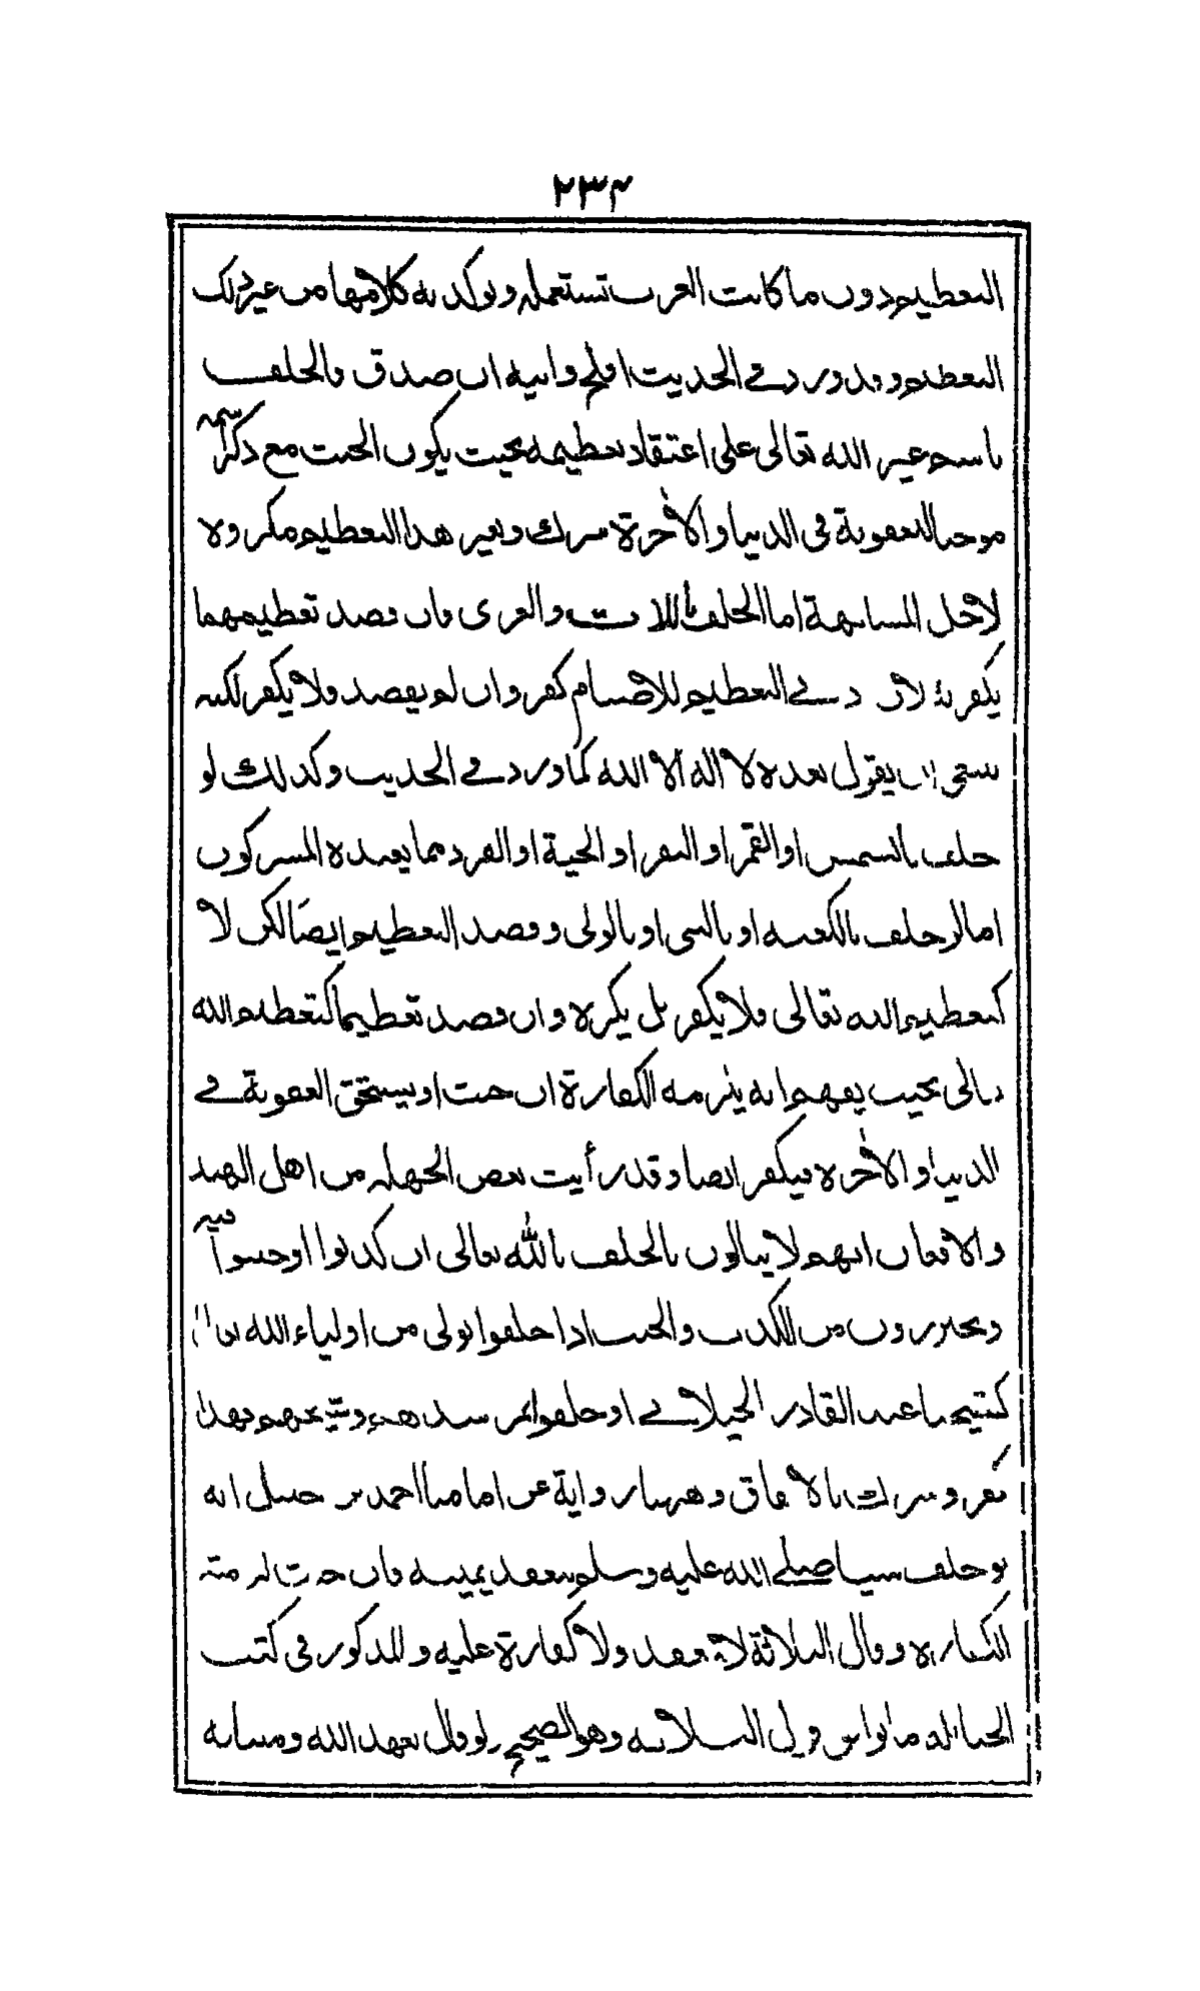 ٢٣٤
التعظيم دون ما كانت العرب تستعمله وتوكد به كلامها من غير ذلك
التعظيم وقد ورد في الحديث افلح وابيه ان صدق والحلف
باسم غير الله تعالى على اعتقاد تعظيمه بحيث يكون الحنث مع ذكر اسمه
موجبا للعقوبة في الدنيا والآخرة شرك وبغير هذا التعظيم مكروه
لاجل المشابهة اما الحلف باللات والعزى فان قصد تعظيمهما
يكفر به لان في التعظيم للاصنام كفر وان لم يقصد فلا يكفر لكنه
يستحق ان يقول بعده لا اله الا الله كما ورد في الحديث وكذلك لو
حلف بالشمس او القمر او البقر او الحية او القرد مما يعبده المشركون
اما لو حلف بالكعبة او بالنبي او بالولي وقصد التعظيم ايضًا لكن لا
كتعظيم الله تعالى فلا يكفر بل يكره وان قصد تعظيما كتعظيم الله
تعالى بحيث يفهم انه يلزمه الكفارة ان حنث او يستحق العقوبة في
الدنيا والآخرة فيكفر ايضا وقد رأيت بعض الجهلة من اهل الهند
والافغان انهم لا يبالون بالحلف بالله تعالى ان كذبوا او حنثوا فيه
ويحترزون من الكذب والحنث اذا حلفوا بولي من اولياء الله تعالى
كشيخنا عبد القادر الجيلاني او حلفوا بمرشدهم وشيخهم فهذا
كفر وشرك بالاتفاق وههنا رواية عن امامنا احمد بن حنبل انه
لو حلف بنبينا صلى الله عليه وسلم ينعقد يمينه فان حنث لزمته
الكفارة وقال الثلاثة لا ينعقد ولا كفارة عليه والمذكور في كتب
الحنابلة ما يوافق قول الثلاثة وهو الصحيح ولو قال بعهد الله وميثاقه